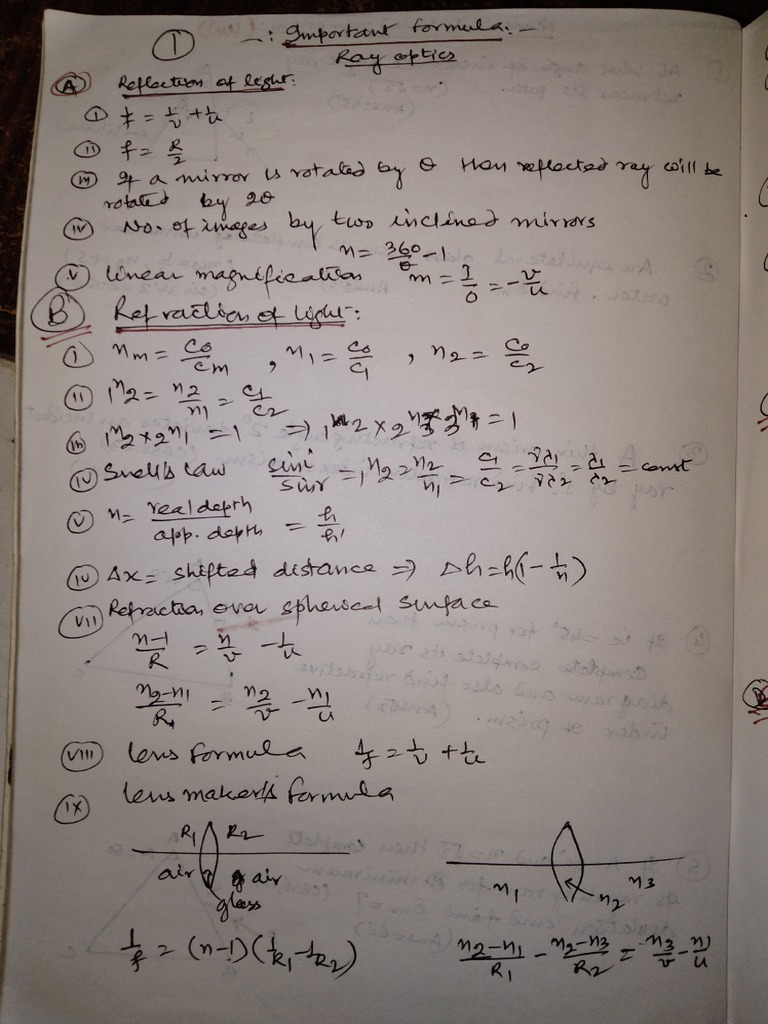 ① –: Important formula: –
Ray optics
Ⓐ Reflection of light:
(i) 1/f = 1/v + 1/u
(ii) f = R/2
(iii) If a mirror is rotated by θ then reflected ray will be
rotated by 2θ
(iv) No. of images by two inclined mirrors
n = 360/θ - 1
(v) linear magnification m = I/O = -v/u
Ⓑ Refraction of light:
(i) nm = c0/cm , n1 = c0/c1 , n2 = c0/c2
(ii) 1n2 = n2/n1 = c1/c2
(iii) 1n2 × 2n1 = 1 ⇒ 1n2 × 2n3 × 3n1 = 1
(iv) Snell's law sini/sinr = 1n2 = n2/n1 = c1/c2 = νλ1/νλ2 = λ1/λ2 = const
(v) n = real depth/app. depth = h/h'
(iv) Δx = shifted distance ⇒ Δh = h(1 - 1/n)
(vii) Refraction over spherical surface
n-1/R = n/v - 1/u
n2-n1/R1 = n2/v - n1/u
(viii) lens formula 1/f = 1/v + 1/u
(ix) lens maker's formula
R1 R2
air air
glass
n1 n2 n3
1/f = (n-1)(1/R1 - 1/R2)
n2-n1/R1 - n2-n3/R2 = n3/v - n1/u